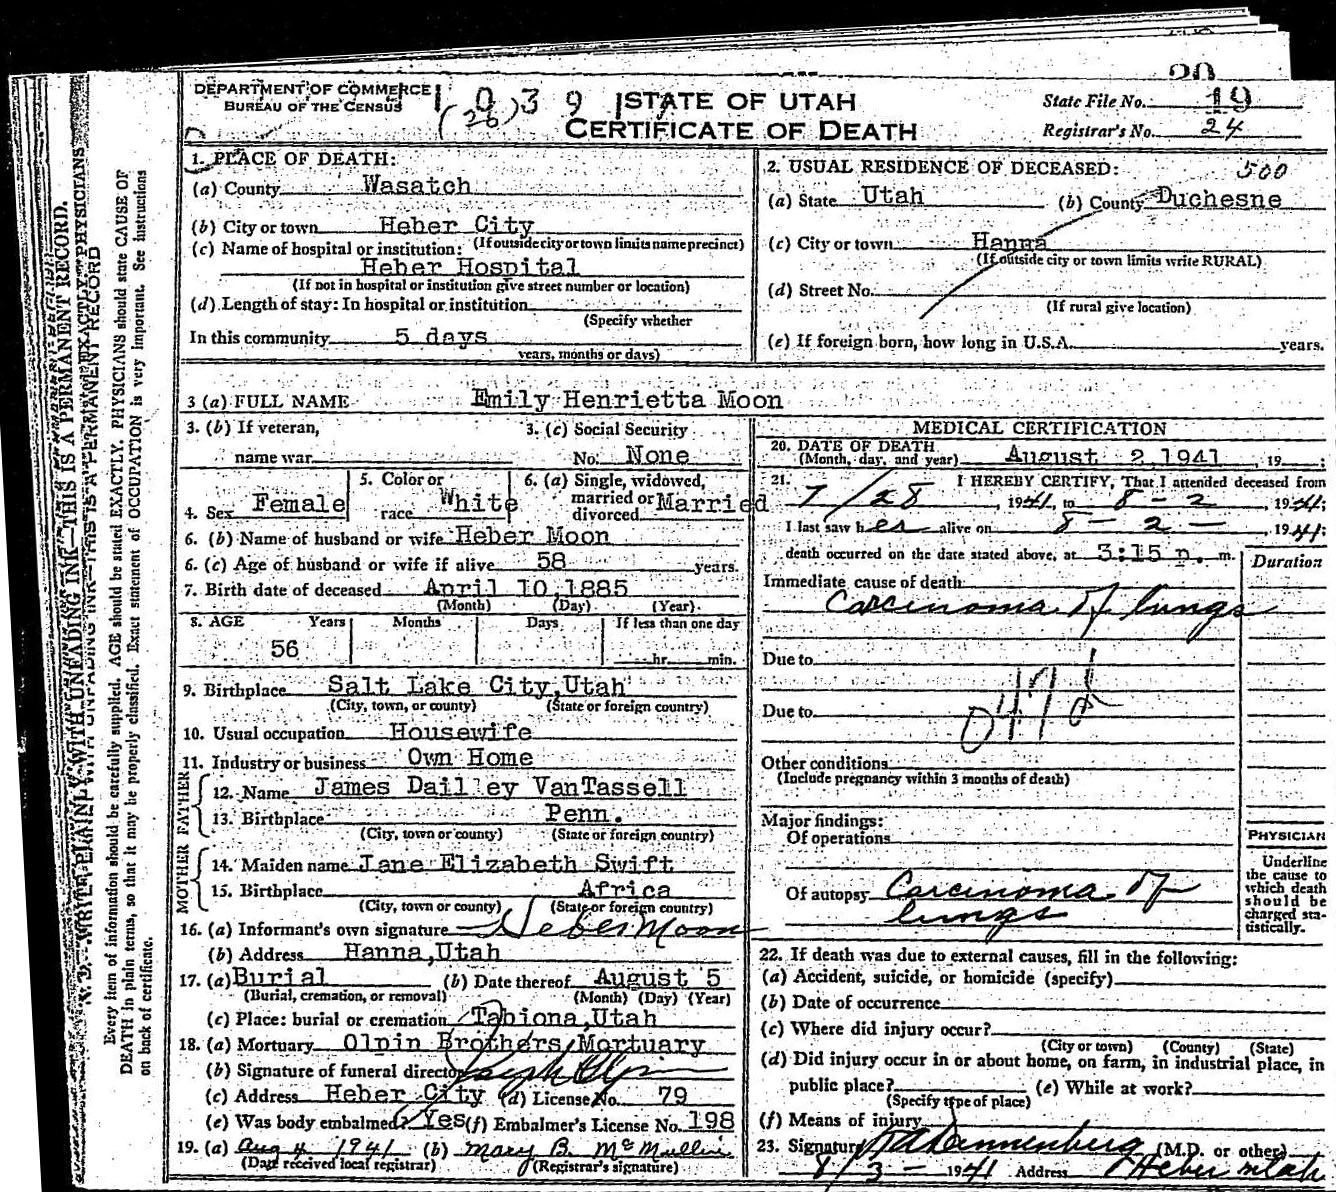 DEPARTMENT OF COMMERCE
BUREAU OF THE CENSUS
1 0 3 9
(26)
STATE OF UTAH
CERTIFICATE OF DEATH
20
State File No. 19
Registrar's No. 24
N. B.—WRITE PLAINLY WITH UNFADING INK—THIS IS A PERMANENT RECORD.
Every item of information should be carefully supplied. AGE should be stated EXACTLY. PHYSICIANS should state CAUSE OF
DEATH in plain terms, so that it may be properly classified. Exact statement of OCCUPATION is very important. See instructions
on back of certificate.
1. PLACE OF DEATH:
(a) County Wasatch
(b) City or town Heber City
(If outside city or town limits name precinct)
(c) Name of hospital or institution:
Heber Hospital
(If not in hospital or institution give street number or location)
(d) Length of stay: In hospital or institution
(Specify whether
In this community 5 days
years, months or days)
2. USUAL RESIDENCE OF DECEASED: 500
(a) State Utah (b) County Duchesne
(c) City or town Hanna
(If outside city or town limits write RURAL)
(d) Street No.
(If rural give location)
(e) If foreign born, how long in U.S.A. years.
3 (a) FULL NAME Emily Henrietta Moon
3. (b) If veteran, name war
3. (c) Social Security No. None
4. Sex Female
5. Color or race White
6. (a) Single, widowed, married or divorced Married
6. (b) Name of husband or wife Heber Moon
6. (c) Age of husband or wife if alive 58 years.
7. Birth date of deceased April 10, 1885
(Month) (Day) (Year)
8. AGE Years Months Days If less than one day
56 hr. min.
9. Birthplace Salt Lake City, Utah
(City, town, or county) (State or foreign country)
10. Usual occupation Housewife
11. Industry or business Own Home
FATHER
12. Name James Dailley VanTassell
13. Birthplace Penn.
(City, town or county) (State or foreign country)
MOTHER
14. Maiden name Jane Elizabeth Swift
15. Birthplace Africa
(City, town or county) (State or foreign country)
16. (a) Informant's own signature Heber Moon
(b) Address Hanna, Utah
17. (a) Burial (b) Date thereof August 5
(Burial, cremation, or removal) (Month) (Day) (Year)
(c) Place: burial or cremation Tabiona, Utah
18. (a) Mortuary Olpin Brothers Mortuary
(b) Signature of funeral director
(c) Address Heber City (d) License No. 79
(e) Was body embalmed? Yes (f) Embalmer's License No. 198
19. (a) Aug 4 1941 (b) Mary B. McMullin
(Date received local registrar) (Registrar's signature)
MEDICAL CERTIFICATION
20. DATE OF DEATH
(Month, day, and year) August 2, 1941, 19 ;
21. I HEREBY CERTIFY, That I attended deceased from
7/28, 1941, to 8-2, 1941;
I last saw her alive on 8-2-, 1941;
death occurred on the date stated above, at 3:15 p. m.
Duration
Immediate cause of death
Carcinoma of lungs
Due to
047d
Due to
Other conditions
(Include pregnancy within 3 months of death)
Major findings:
Of operations
Of autopsy Carcinoma of
lungs
PHYSICIAN
Underline
the cause to
which death
should be
charged sta-
tistically.
22. If death was due to external causes, fill in the following:
(a) Accident, suicide, or homicide (specify)
(b) Date of occurrence
(c) Where did injury occur?
(City or town) (County) (State)
(d) Did injury occur in or about home, on farm, in industrial place, in
public place? (e) While at work?
(Specify type of place)
(f) Means of injury
23. Signature Dannenberg (M.D. or other)
8/3-1941 Address Heber Utah